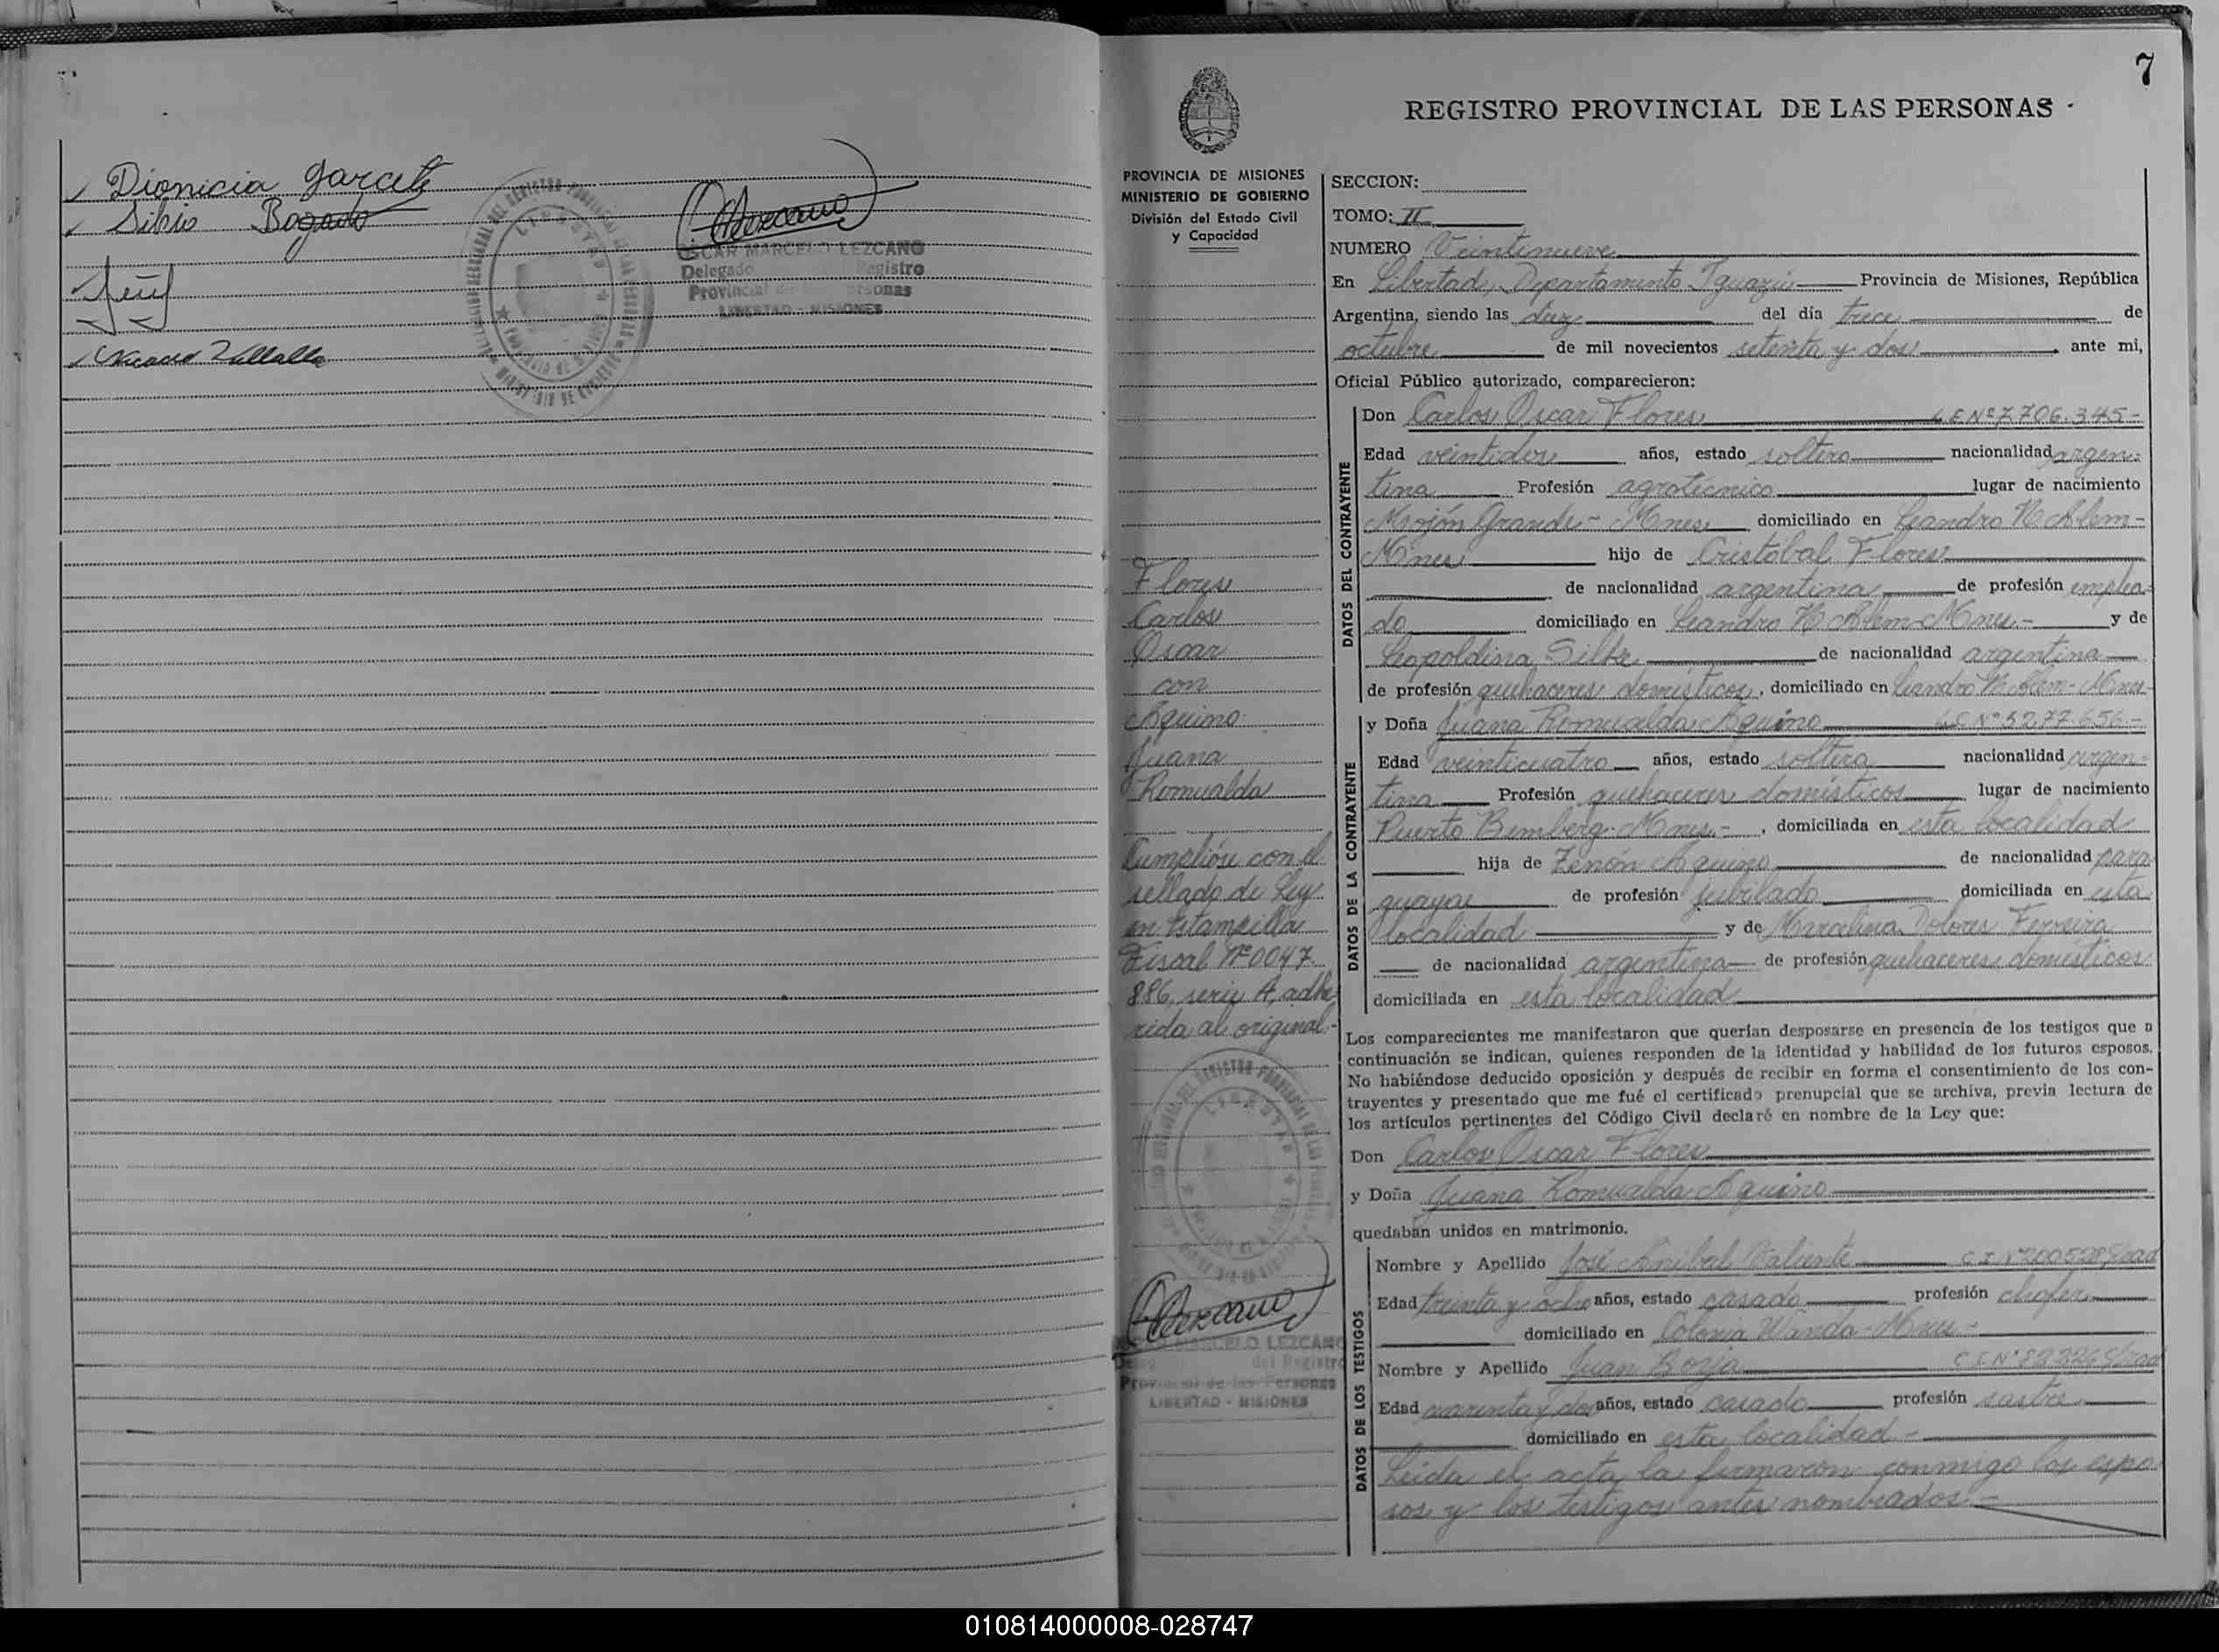 Dionicia Garcete
Silvio Bogado
OSCAR MARCELO LEZCANO
Delegado Registro
Provincial de Personas
LIBERTAD - MISIONES
7
REGISTRO PROVINCIAL DE LAS PERSONAS
PROVINCIA DE MISIONES
MINISTERIO DE GOBIERNO
División del Estado Civil
y Capacidad
SECCION:
TOMO: II
NUMERO Veintinueve
En Libertad, Departamento Iguazú Provincia de Misiones, República
Argentina, siendo las diez del día trece de
octubre de mil novecientos setenta y dos ante mi,
Oficial Público autorizado, comparecieron:
DATOS DEL CONTRAYENTE
Don Carlos Oscar Flores L.E Nº 7.706.345-
Edad veintidos años, estado soltero nacionalidad argen-
tina Profesión agrotécnico lugar de nacimiento
Mojón Grande - Mnes domiciliado en Leandro N. Alem-
Mnes hijo de Cristóbal Flores
de nacionalidad argentina de profesión emplea-
do domiciliado en Leandro N. Alem-Mnes.- y de
Leopoldina Silva de nacionalidad argentina
de profesión quehaceres domésticos, domiciliado en Leandro N. Alem - Mnes-
DATOS DE LA CONTRAYENTE
y Doña Juana Romualda Aquino L.C Nº 5277.656.-
Edad veinticuatro años, estado soltera nacionalidad argen-
tina Profesión quehaceres domésticos lugar de nacimiento
Puerto Bemberg-Mnes.-, domiciliada en esta localidad
hija de Zenón Aquino de nacionalidad para
guaya de profesión jubilado domiciliada en esta
localidad y de Marcelina Dolores Ferreira
de nacionalidad argentina de profesión quehaceres domésticos
domiciliada en esta localidad
Los comparecientes me manifestaron que querían desposarse en presencia de los testigos que a
continuación se indican, quienes responden de la identidad y habilidad de los futuros esposos.
No habiéndose deducido oposición y después de recibir en forma el consentimiento de los con-
trayentes y presentado que me fué el certificado prenupcial que se archiva, previa lectura de
los artículos pertinentes del Código Civil declaré en nombre de la Ley que:
Don Carlos Oscar Flores
y Doña Juana Romualda Aquino
quedaban unidos en matrimonio.
DATOS DE LOS TESTIGOS
Nombre y Apellido José Anibal Valiente C.I. Nº
Edad treinta y ocho años, estado casado profesión chofer
domiciliado en Colonia Wanda - Mnes-
Nombre y Apellido Juan Borja C.I. Nº
Edad cuarenta y dos años, estado casado profesión sastre
domiciliado en esta localidad -
Leida el acta, la firmaron conmigo los espo
sos y los testigos antes nombrados.-
Flores
Carlos
Oscar
con
Aquino
Juana
Romualda
Cumplióse con el
sellado de Ley
en Estampilla
Fiscal Nº 0047.
886, serie A, adhe
rida al original.-
MARCELO LEZCANO
del Registro
Provincial de las Personas
LIBERTAD - MISIONES
010814000008-028747